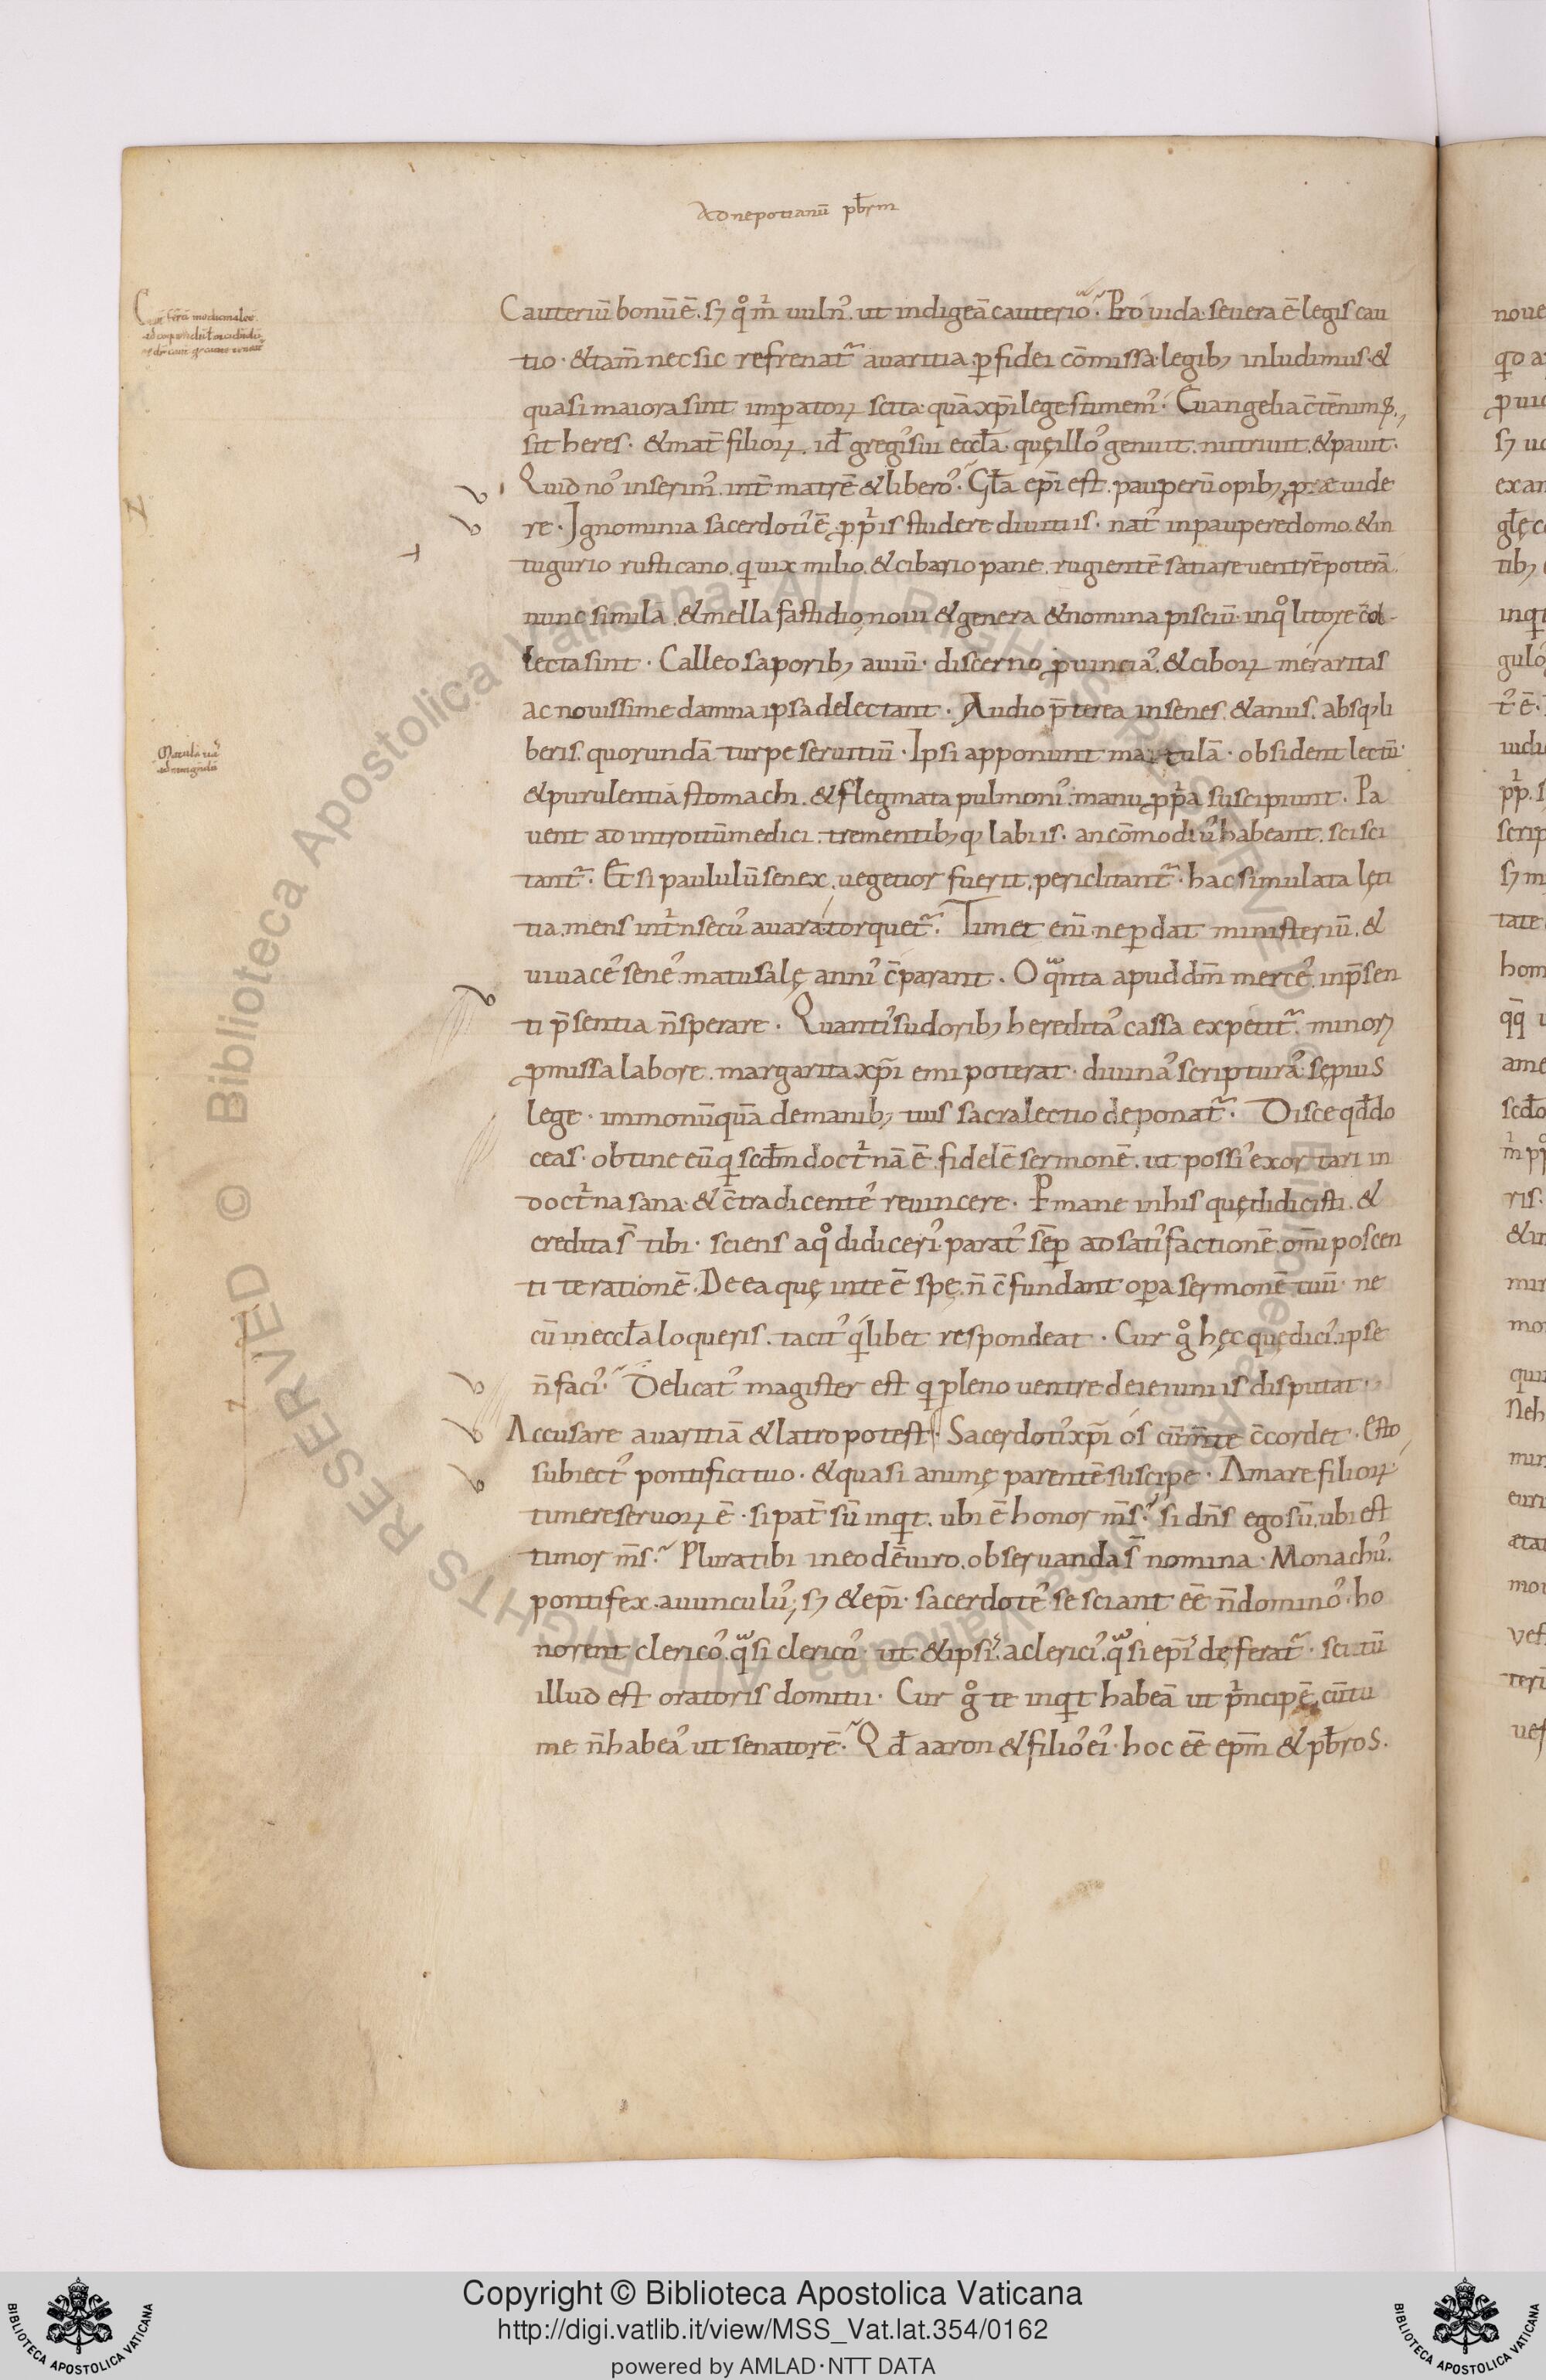 Ad nepotianū pbr̄m
Cauteriū bonū ē. sꝫ qͦ mⁱ uulnꝰ. ut indigeā cauterio. Prouida. seuera ē legis cau
tio. & tam̄ nec sic refrenat᷑ auaritia. ꝑ fidei cōmissa. legibꝫ inludimus. &
quasi maiora sint imꝑatoꝝ scita. quā xp̄i lege stimemꝰ. Euangelia c̄tēnimꝰ.
sit heres. & mat̄ filioꝝ. id̄ gregꝰ sui eccl̄a. quę illoꝰ genuit. nutriuit. & pauit.
Quid noꝰ inserimꝰ. int̄ matrē & liberoꝰ. Gl̄a ep̄i est. pauperū opibꝫ ꝓuide
re. Ignominia sacerdotiꝰ ē ꝓpⁱis studere diuitiis. natꝰ in paupere domo. & in
tugurio rusticano. qⁱ uix milio. & cibario pane. rugientē satiare uentrē poterā.
nunc similā. & mella fastidio. noui & genera & nomina pisciū. in qͦ litore c̄ol-
lecta sint. Calleo saporibꝫ auiū. discerno ꝓuinciaꝰ. & ciboꝝ me raritas
ac nouissime damna ipsa delectant. Audio p̄terea in senes. & anus. absqꝫ li
beris. quorundā turpe seruitiū. Ipsi apponunt matulā. obsident lectū.
& purulentiā stomachi. & flegmata pulmoniꝰ. manu ꝓpⁱa suscipiunt. Pa
uent ad introitū medici. trementibꝫqꝫ labiis. an cōmodiuꝰ habeant. scisci
tant᷑. Et si paululū senex. uegetior fuerit. periclitant᷑. hac simulata lęti
tia. mens intⁱnsecuꝰ auara torquet᷑. Timet eni̅. ne ꝑdat ministeriū. &
uiuaceꝰ seneꝰ. matusalę anniꝰ c̄parant. O qᵃnta apud dm̄ merceꝰ. in p̄sen
ti p̄sentia n̄ sperare. Quantiꝰ sudoribꝫ hereditaꝰ cassa expetit᷑. minorꝫ
ꝓmissa labore. margarita xp̄i emi poterat. diuinaꝰ scripturaꝰ. sępius
lege. immo nūquā de manibꝫ tuis sacra lectio deponat᷑. Disce qd̄ do
ceas. obtine eū qⁱ scd̄m doctⁱnā ē. fidelē sermonē. ut possiꝰ exortari in
doctⁱna sana. & c̄tradicenteꝰ reuincere. Pmane in his quę didicisti. &
credita s̄ tibi. sciens a qͦ didiceriꝰ. paratꝰ sēꝑ ad satiꝰfactionē. om̄i poscen
ti te rationē. De ea quę in te ē spę. n̄ c̄fundant oꝑa sermonē tuū. ne
cū in eccl̄a loqueris. tacitꝰ qⁱlibet respondeat. Cur gͦ hęc quę diciꝰ. ipse
n̄ faciꝰ. Delicatꝰ magister est qⁱ pleno uentre de ieiuniis disputat.
Accusare auaritiā & latro potest. Sacerdotiꝰ xp̄i os cū m̄te c̄cordet. Esto
subiectꝰ pontifici tuo. & quasi animę parentē suscipe. Amare filioꝝ
timere seruoꝝ ē. si pat̄ sū inqⁱt. ubi ē honor m̄s. si dn̄s ego sū. ubi est
timor m̄s. Plura tibi in eodē uiro. obseruanda s̄ nomina. Monachuꝰ.
pontifex. auunculuꝰ. sꝫ & ep̄i. sacerdoteꝰ se sciant eē n̄ dominoꝰ. ho
norent clericoꝰ. qᵃsi clericoꝰ. ut & ipsiꝰ. a clericiꝰ. qᵃsi ep̄iꝰ deferat᷑. scitū
illud est oratoris domitii. Cur gͦ te inqⁱt habeā ut pⁱncipē. cū tu
me n̄ habeaꝰ ut senatorē. Qd̄ aaron & filioꝰ eiꝰ. hoc eē ep̄m & pbr̄os.
Biblioteca Apostolica Vaticana ALL RIGHTS RESERVED ©
Copyright © Biblioteca Apostolica Vaticana
http://digi.vatlib.it/view/MSS_Vat.lat.354/0162
powered by AMLAD·NTT DATA
BIBLIOTECA APOSTOLICA VATICANA
BIBLIOTECA APOSTOLICA VATICANA